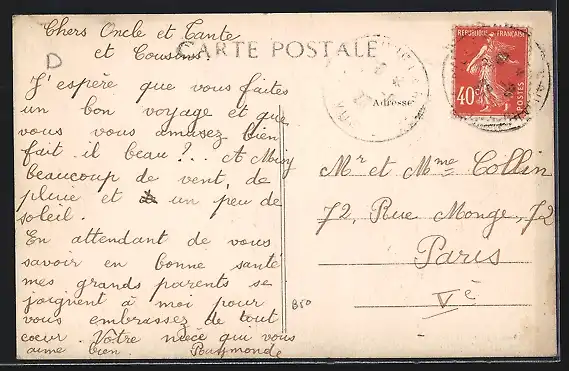 Chers Oncle et Tante
et Cousins
CARTE POSTALE
D
J'espère que vous faites
un bon voyage et que
vous vous amusez bien
fait il beau ?.. A Moisy
beaucoup de vent, de
pluie et un peu de
soleil.
En attendant de vous
savoir en bonne santé
mes grands parents se
joignent à moi pour
vous embrasser de tout
coeur. Votre nièce qui vous
aime bien. Raymonde
Adresse
REPUBLIQUE FRANÇAISE
40c
POSTES
Mr et Mme Collin
72, Rue Monge, 72
Paris
Ve
B50